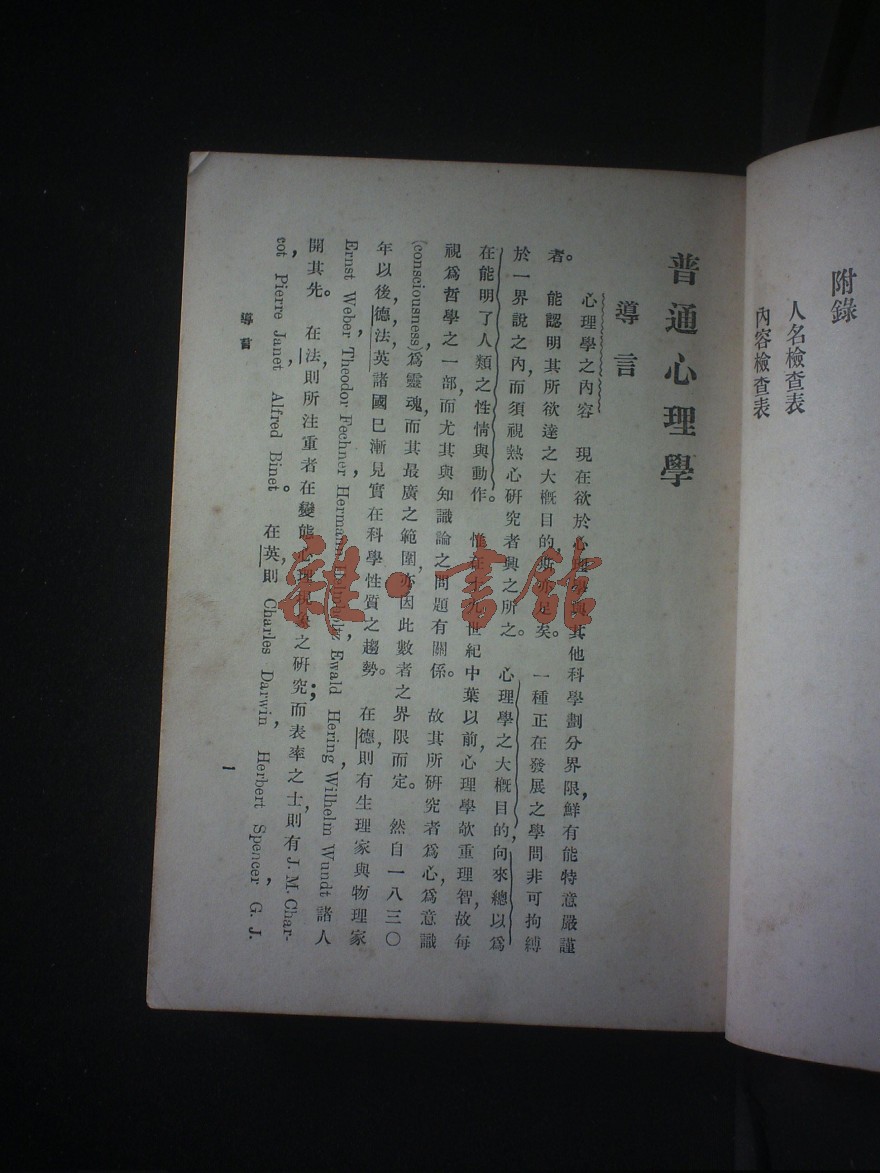 附錄
人名檢查表
內容檢查表
普通心理學
導言
心理學之內容 現在欲於心理學與其他科學劃分界限,鮮有能特意嚴謹
者。能認明其所欲達之大概目的,斯亦足矣。一種正在發展之學問非可拘縛
於一界說之內,而須視熱心研究者興之所之。心理學之大概目的,向來總以爲
在能明了人類之性情與動作。惟在十九世紀中葉以前,心理學欹重理智,故每
視爲哲學之一部,而尤其與知識論之問題有關係。故其所研究者爲心,爲意識
(consciousness),爲靈魂,而其最廣之範圍,亦因此數者之界限而定。然自一八三〇
年以後,德,法,英諸國已漸見實在科學性質之趨勢。在德,則有生理家與物理家
Ernst Weber, Theodor Fechner, Hermann Helmholtz, Ewald Hering, Wilhelm Wundt 諸人
開其先。在法,則所注重者在變態心理現象之研究;而表率之士,則有 J. M. Char-
cot, Pierre Janet, Alfred Binet。在英,則 Charles Darwin, Herbert Spencer, G. J.
導言
1
雜·書館